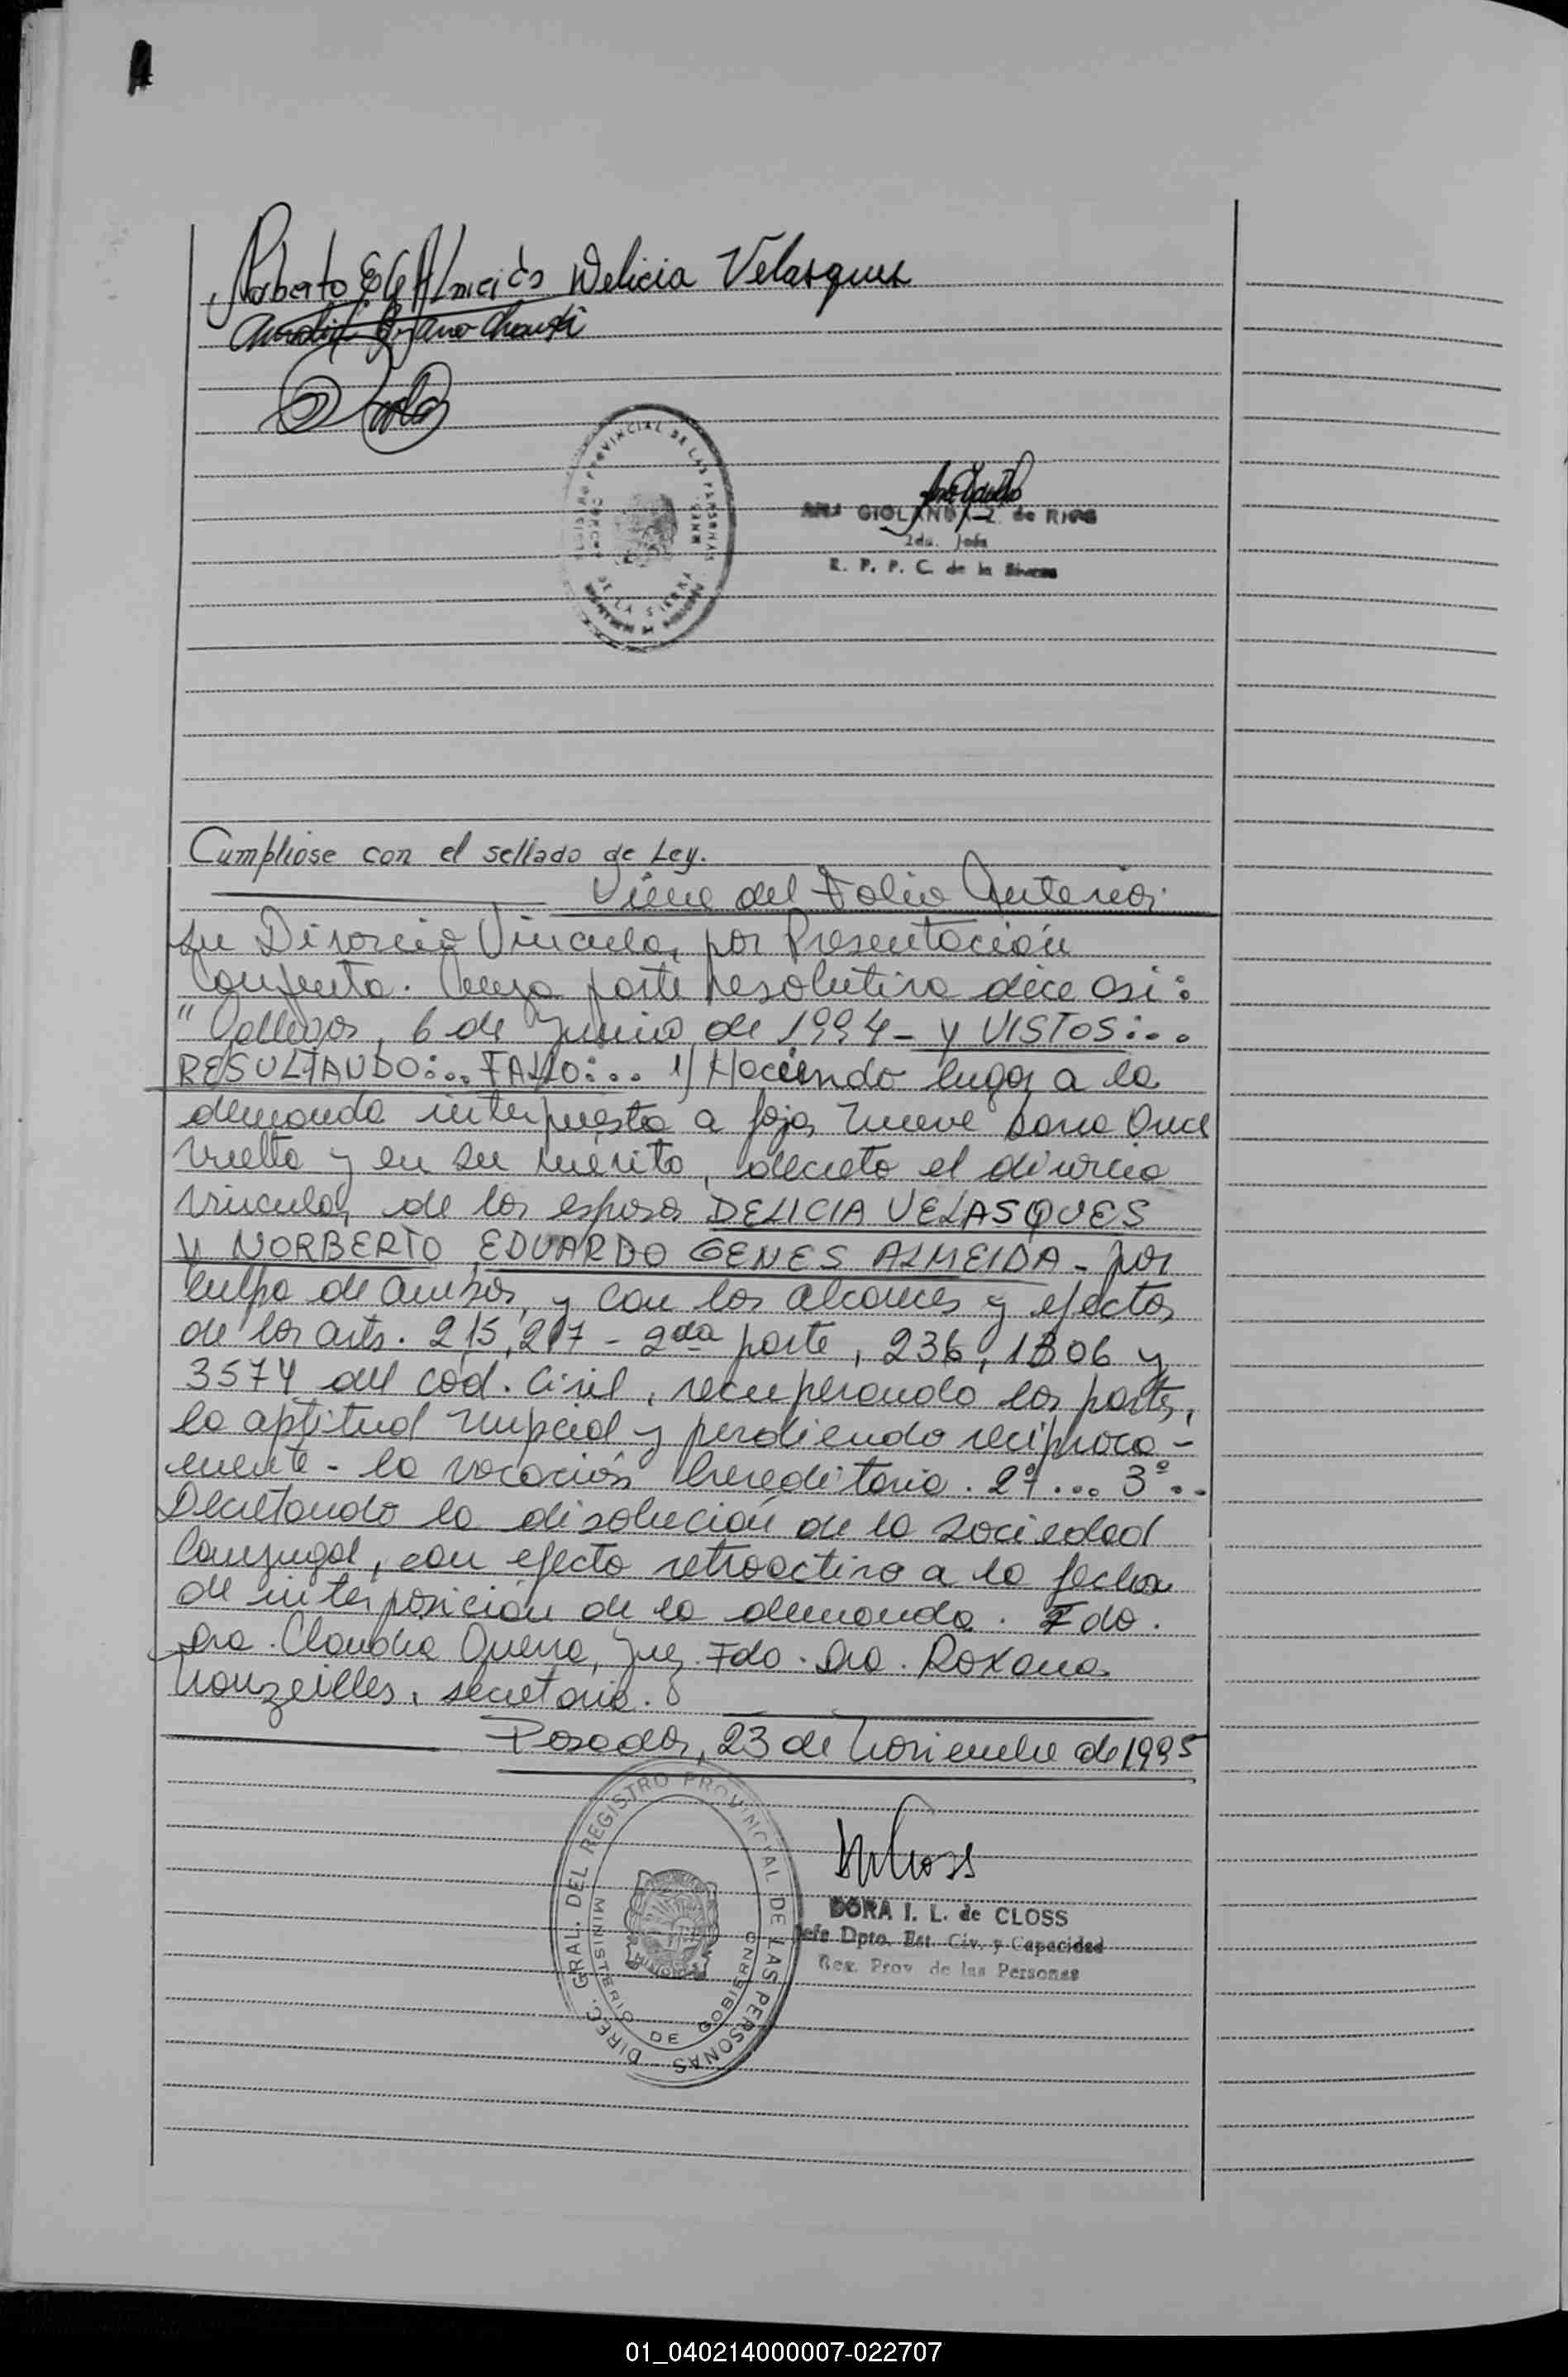 Norberto E G Almeida Delicia Velasques
REGISTRO PROVINCIAL DE LAS PERSONAS
DE LA SIERRA
ANA GIOLANDI Z. de RIOS
2da. Jefa
R. P. P. C. de la Sierra
Cumpliose con el sellado de Ley.
Viene del Folio Anterior.
su Divorcio Vincular, por Presentación
Conjunta. Cuya parte resolutiva dice así:
" Gallegos, 6 de Junio de 1994 - y VISTOS:...
RESULTANDO:.. FALLO:... 1) Haciendo lugar a la
demanda interpuesta a fojas nueve barra once
vuelta y en su mérito, decreto el divorcio
vincular, de los esposos DELICIA VELASQUES
y NORBERTO EDUARDO GENES ALMEIDA - por
culpa de ambos, y con los alcances y efectos
de los arts. 215, 217 - 2da parte, 236, 1306 y
3574 del cód. Civil, recuperando las partes,
la aptitud nupcial y perdiendo recíproca-
mente - la vocación hereditaria. 2º... 3º..
Decretando la disolución de la sociedad
Conyugal, con efecto retroactivo a la fecha
de interposición de la demanda. Fdo.
Dra. Claudia Guerra, Juez. Fdo. Dra. Roxana
Trouzeilles, secretaria.
Posadas, 23 de Noviembre de 1995
DIREC. GRAL. DEL REGISTRO PROVINCIAL DE LAS PERSONAS
MINISTERIO DE GOBIERNO
MISIONES
DORA I. L. de CLOSS
Jefe Dpto. Est. Civ. y Capacidad
Reg. Prov. de las Personas
01_040214000007-022707